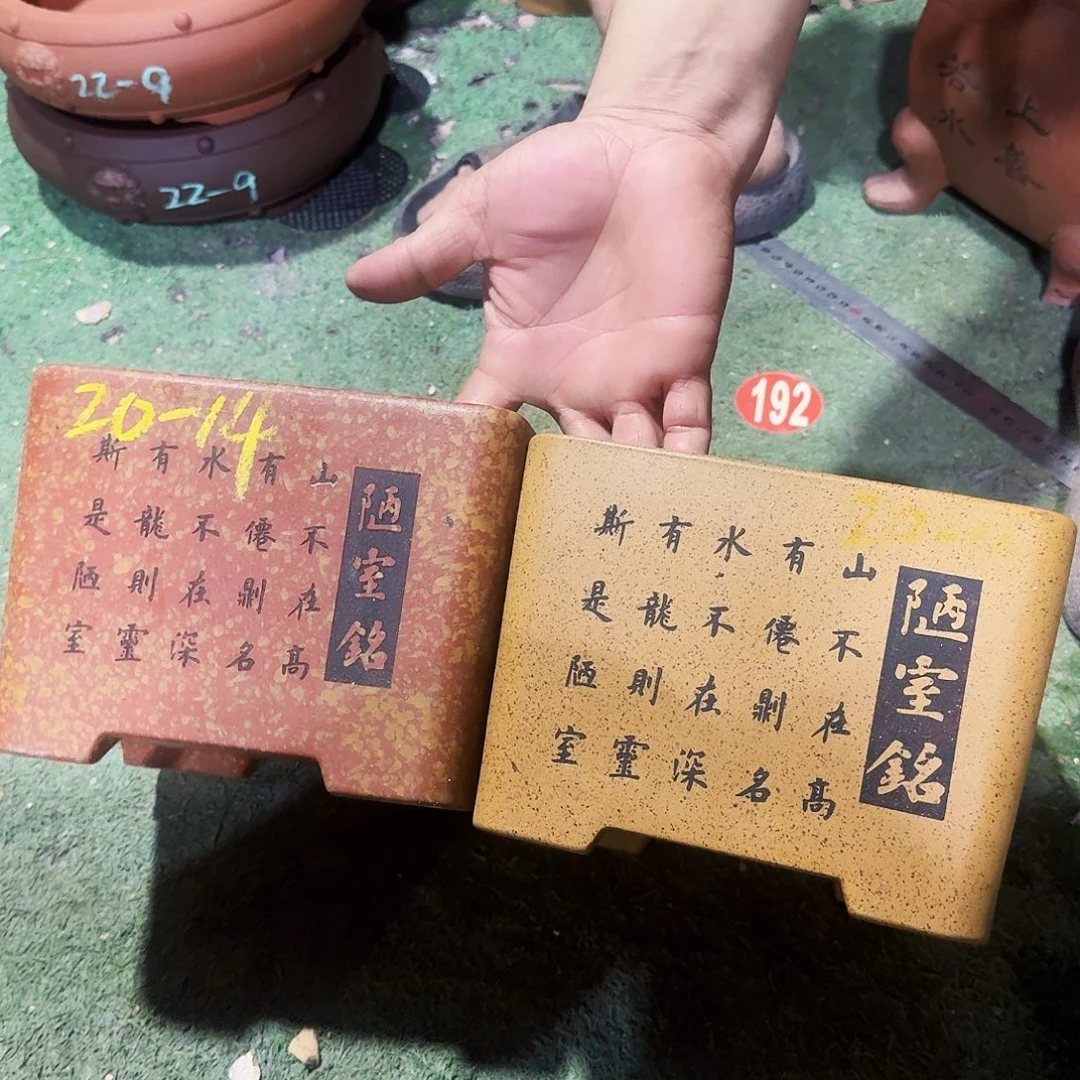 22-9
22-9
上善
若水
192
20-14
陋室銘
山不在高
有僊剿名
水不在深
有龍則靈
斯是陋室
陋室銘
山不在高
有僊剿名
水不在深
有龍則靈
斯是陋室